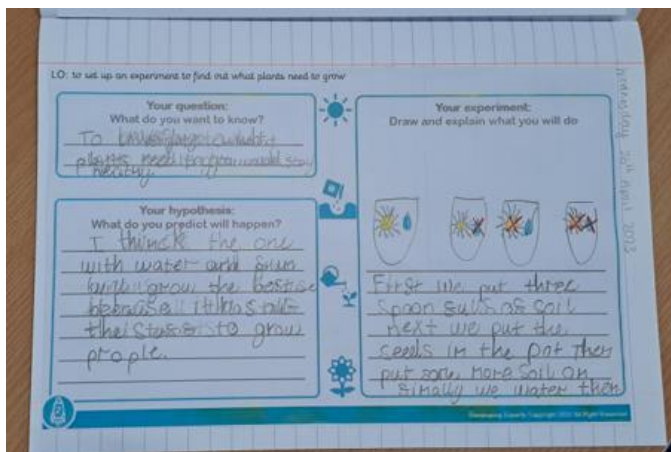 LO: to set up an experiment to find out what plants need to grow
Your question:
What do you want to know?
To investigate what
plants need to grow and stay
healthy.
Your hypothesis:
What do you predict will happen?
I think the one
with water and sun
will grow the best
because it has all
the stuff to grow
prople.
Your experiment:
Draw and explain what you will do
First we put three
spoon fulls of soil
next we put the
seeds in the pot Then
put some more soil on
finally we water them
Wednesday 26th April 2023
Developing Experts Copyright All Rights Reserved